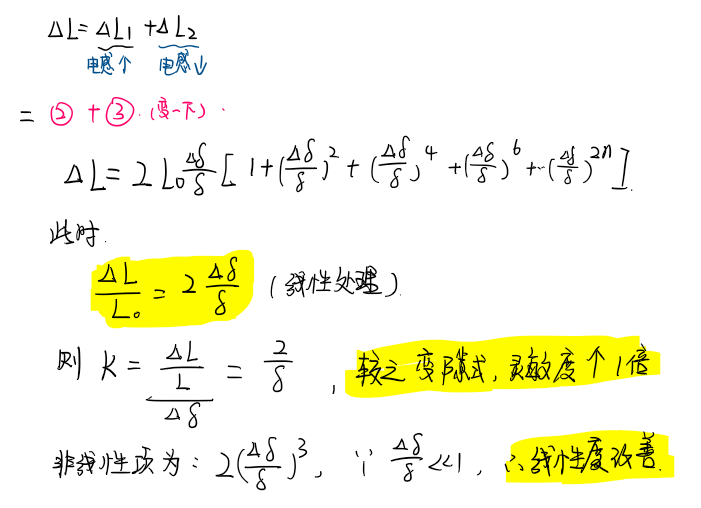 ΔL = ΔL₁ + ΔL₂
电感↑ 电感↓
= ② + ③ (变一下).
ΔL = 2 L₀ Δδ/δ [ 1 + (Δδ/δ)² + (Δδ/δ)⁴ + (Δδ/δ)⁶ + ··· (Δδ/δ)²ⁿ ].
此时.
ΔL/L₀ = 2 Δδ/δ (线性处理).
则 K = (ΔL/L)/Δδ = 2/δ , 较之变隙式, 灵敏度个1倍
非线性项为: 2(Δδ/δ)³, ∵ Δδ/δ <<1, ∴ 线性度改善.